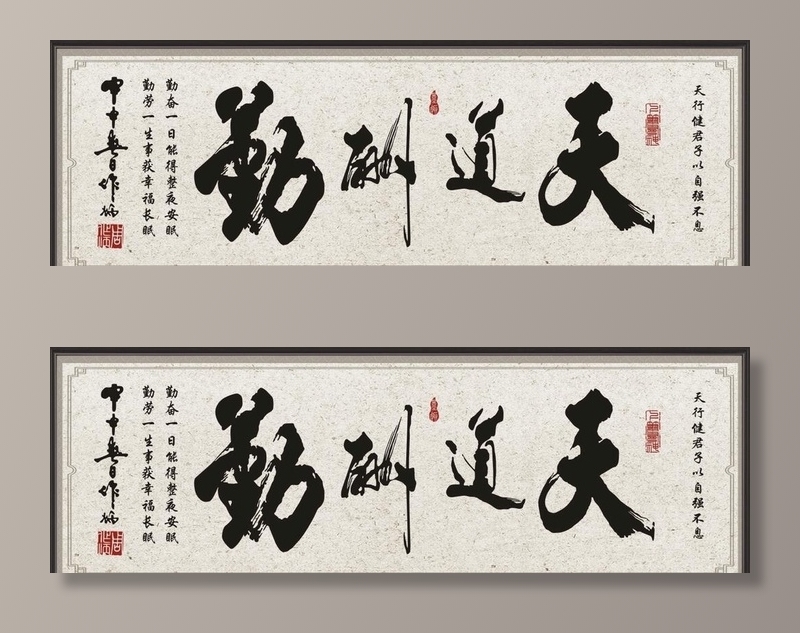 天行健君子以自强不息
天道酬勤
勤奋一日能得整夜安眠
勤劳一生事获幸福长眠
日作
天行健君子以自强不息
天道酬勤
勤奋一日能得整夜安眠
勤劳一生事获幸福长眠
日作